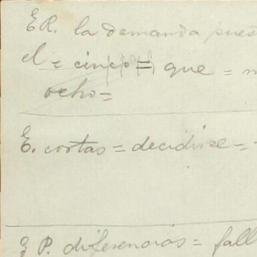 ER. la demanda pues
el = cinco = que =
ocho =
E. cortas = decidirse =
P. diferencias = fall